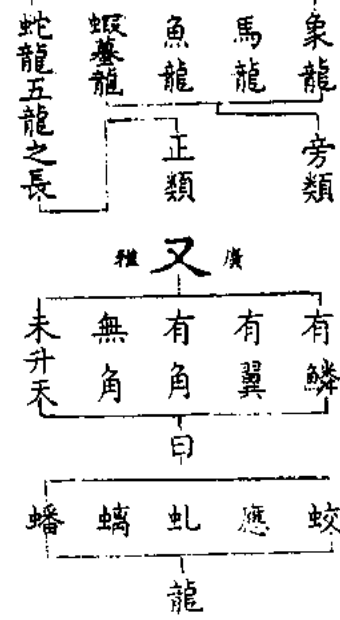 象龍
馬龍
魚龍
蝦蟇龍
蛇龍五龍之長
旁類
正類
又
廣雅
有鱗
有翼
有角
無角
未升天
曰
蛟
應
虬
螭
蟠
龍